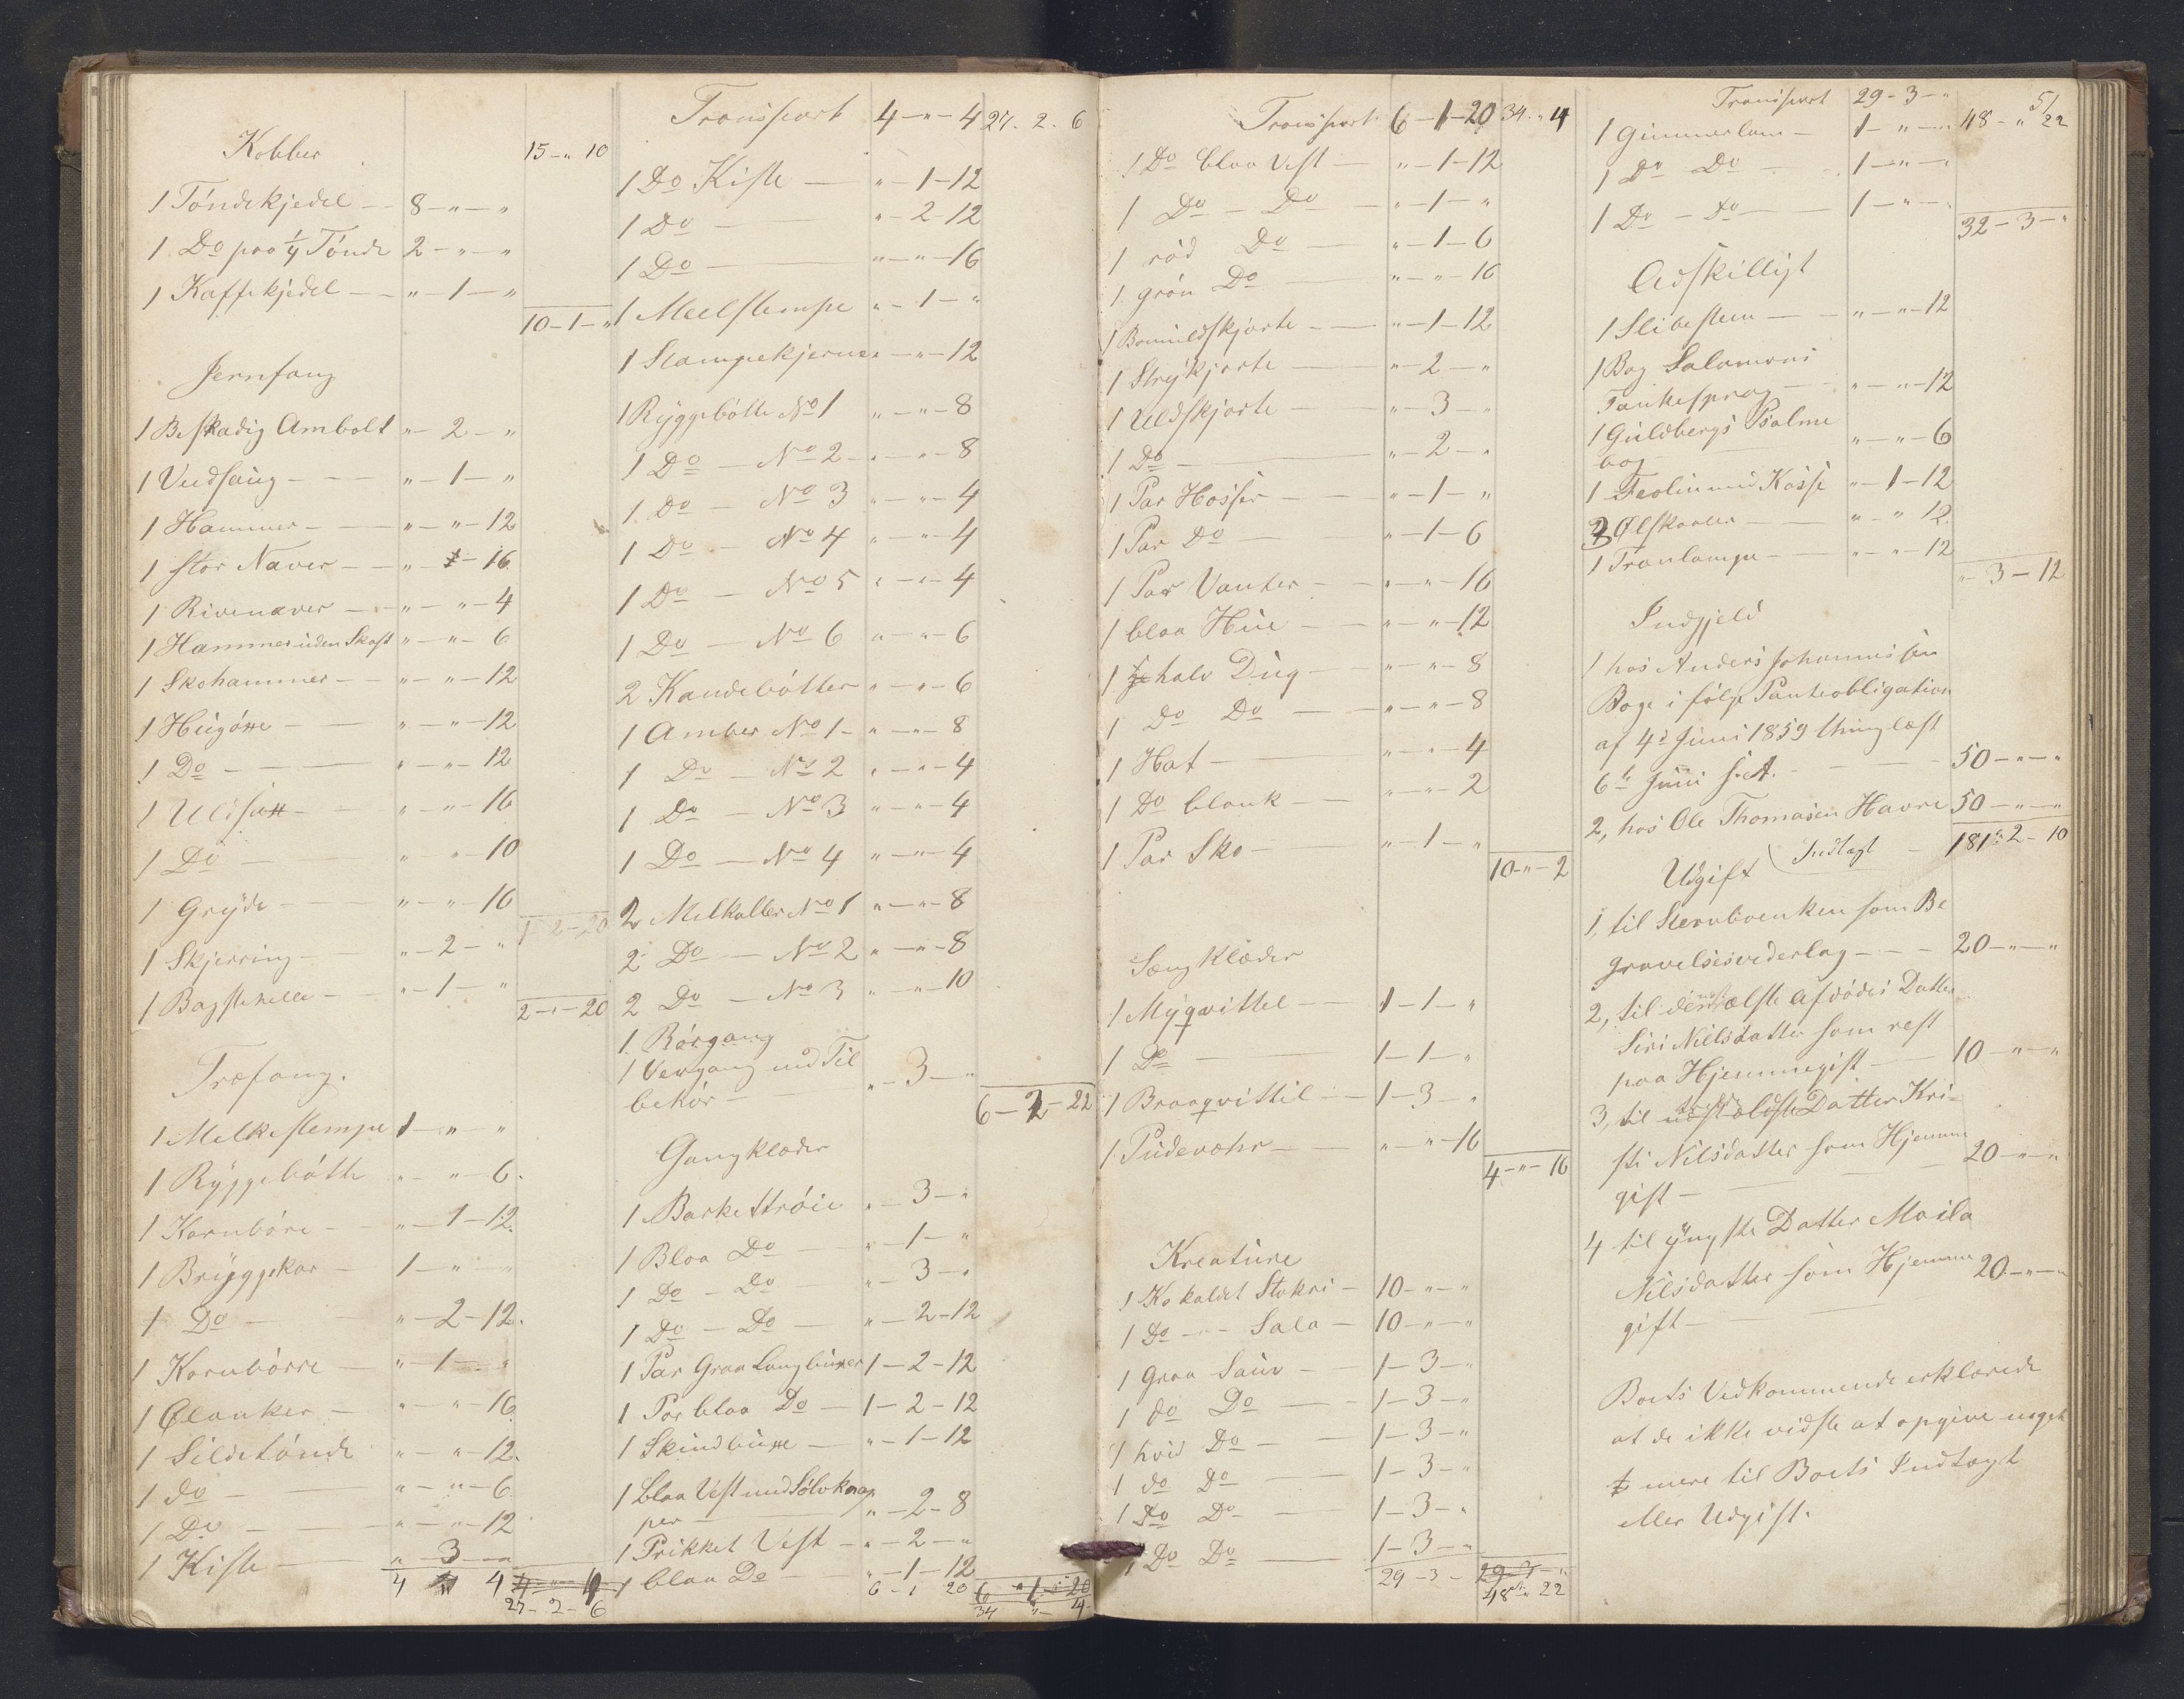 15 - " 10
Kobber
1 Töndekjedel - - 8 - " - "
1 Do paa 1/4 Tönde 2 - " - "
1 Kaffekjedel - - " - 1 - "
10 - 1 - "
Jernfang
1 Beskadig Ambolt " - 2 - "
1 Vedsaug - - - " - 1 - "
1 Hammer - - " - " - 12
1 stor Naver - - " - 16
1 Rivenaver - - " - " - 4
1 Hammer uden Skaft " - " - 6
1 Skohammer - - " - " - 12
1 Hugöxe - - " - " - 12
1 Do - - " - " - 12
1 - " - " - 16
1 Do " - " - 10
1 Gryde - " - " - 16
1 - 2 - 20
1 Skjerring - " - 2 - "
1 Bagstehelle - " - 1 - "
2 - " - 20
Træfang.
1 Melkestempe 1 - " - "
1 Ryggebötte " - " - 6.
1 Kornböre - " - 1 - 12.
1 Bryggekar - 1 - " - "
1 Do - " - 2 - 12.
1 Kornbörre - " - 1 - "
1 Ølanker - " - " - 16
1 Sildetönde " - " - 12.
1 do - " - " - 6.
1 Do - " - " - 12
1 Kiste - " - 3 - "
4 " 4
4 - " - 4
27 - 2 - 6
Transport 4 - " - 4 27. 2. 6
1 Do Kiste - " - 1 - 12
1 Do - " - 2 - 12
1 Do - " - " - 16
1 Meelstempe " - 1 - "
1 Stampekjerne " - " - 12
1 Ryggebötte No 1 " - " - 8
1 Do - No 2 - " - " - 8
1 Do - No 3 " - " - 4
1 Do - No 4 " - " - 4
1 Do - No 5 " - " - 4
1 Do - No 6 " - " - 6
2 Kandebötter " - " - 6
1 Amber No 1 - " - " - 8
1 Do - No 2 " - " - 4
1 Do - No 3 " - " - 4
1 Do - No 4 " - " - 4
2 Melkaller No 1 " - " - 8
2 Do - No 2 " - " - 8
2 Do - No 3 " - " - 10
1. Rörgang
1 Vevgang med Til
behör - " - 3 - "
6 - 2 - 22
Gangklæder
1 Barkettröie " - 3 - "
1 Blaa Do - " - 1 - "
1 Do - Do - " - 3 - "
1 Do - Do - " - 2 - 12
1 Par Graa Langbuxer 1 - 2 - 12
1 Par blaa Do - 1 - 2 - 12
1 Skindbuxe - " - 1 - 12
1 blaa Vest med Sölvknap
per " - 2 - 8
1 Prikket Vest - " - 2 - "
1 blaa Do - " - 1 - 12
6 - 1 20 6 " 1 - 20
34 " - 4
Transport 6 - 1 - 20 34. " 4
1 Do blaa Vest - " - 1 - 12
1 Do - Do - " - 1 - "
1 röd Do - " - 1 - 6
1 grön Do - " - " - 16
1 Bomuldskjorte - " - 1 - 12
1 Stryskjorte - " - 2 - "
1 Uldskjorte - " - 3 - "
1 Do - " - 2 - "
1 Par Hosser - " - 1 - "
1 Par Do - " - 1 - 6
1 Par Vanter - " - " - 16
1 blaa Hue - " - " - 12
1 halv Dug - " - " - 8
1 Do Do - " - " - 8
1 Hat - " - " - 4
1 Do blank - " - " - 2
1 Par Sko - " - 1 - "
10 - " - 2
Sengklæder
1 Myqvittel - 1 - 1 - "
1 Do - 1 - 1 - "
1 Braaqvittil - 1 - 3 - "
1 Pudevahr - " - " - 16
4 - " - 16
Kreature
1 Ko kaldet Stokri - 10 - " - "
1 Do - - Sala - 10 - " - "
1 graa Sauv - 1 - 3 - "
1 do Do - 1 - 3 - "
1 hvid Do - 1 - 3 - "
1 do Do - 1 - 3 - "
1 Do Do - 1 - 3 - "
1 Do Do - 1 - 3 - "
29 - 3 - 29 - 3 - "
48 - " 22
51
Transport 29 - 3 - "
1 Gimmerlam - 1 - " - " 48 - " 22
1 Do Do - 1 - " - "
1 Do - Do - 1 - " - "
32 - 3 - "
Adskilligt
1 Slibesteen - " - " - 12
1 Bog Salomons
Tankesprog - " - " - 12
1 Guldbergs Psalme
bog " - " - 6
1 Feolin med Kasse " - 1 - 12
3 Ølskaaler - " - " 12
1 Tranlampe - " - " - 12
" - 3 - 12
Indgjeld
1 hos Anders Johannissen
Boge i fölge Panteobligation
af 4de Juni 1859 thinglæst
6te Juni s. A. - 50 - " - "
2, hos Ole Thomasen Havre 50 - " - "
Indtægt - 181 - 2 - 10
Udgift
1, til Stervboenken som Be
gravelsesvederlag - - 20 - " - "
2, til den næstælste Afdödes Datter
Siri Nilsdatter som rest
paa Hjemmegift - 10 - " - "
3, til ældste Datter Kri=
sti Nilsdatter som Hjemme
gift - 20 - " - "
4 til yngste Datter Maila
Nilsdatter som Hjemme
gift - 20 - " - "
Boets Vedkommende erklærede
at de ikke vidste at opgive noget
mere til Boets Indtægt
eller Udgift.